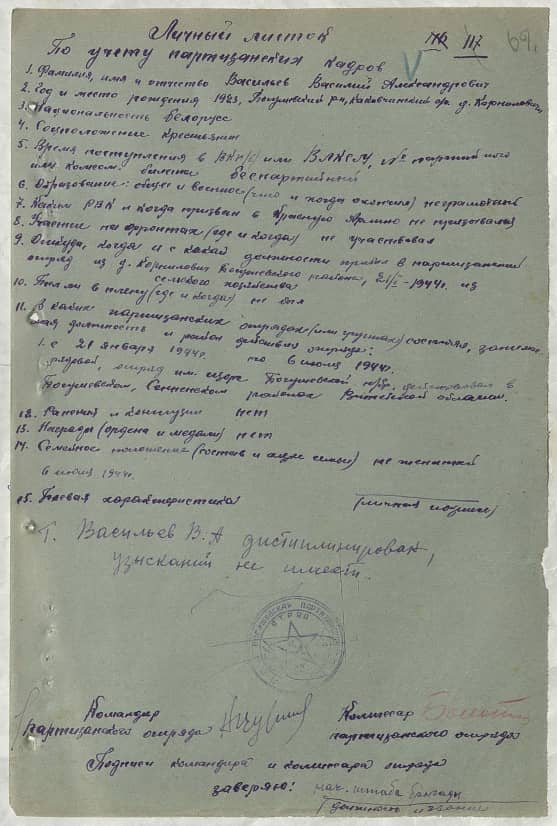 Личный листок
112 117 69.
По учету партизанских кадров
1. Фамилия, имя и отчество Васильев Василий Александрович
2. Год и место рождения 1923, Богушевский р-н,
3. Национальность Белорус
4. Соцположение крестьянин
5. Время поступления в ВКП(б) или ВЛКСМ, № партийного
или комсом. билета беспартийный
6. Образование: общее и военное (что и когда окончил) неграмотный
7. Каким РВК и когда призван в Красную Армию не призывался
8. Участие на фронтах (где и когда) не участвовал
9. Откуда, когда и с какой должности прибыл в партизанский
отряд из д. Богушевского района, 21/I-1944г. из
сельского хозяйства
10. Был ли в плену (где и когда) не был
11. В каких партизанских отрядах (или группах) состоял, занимаемая
должность и район действия отряда:
1. с 21 января 1944г. по 6 июля 1944г.
рядовой, отряд им. Богушевской действовал в
Богушевском, Сенненском районах Витебской области.
12. Ранения и контузии нет
13. Награды (ордена и медали) нет
14. Семейное положение (состав и адрес семьи) не женатый
6 июля 1944г.
15. Боевая характеристика (личная подпись)
Т. Васильев В.А дистиплинирован,
узысканий не имеет.
Командир Комиссар
партизанского отряда партизанского отряда
Подписи командира и комиссара отряда
заверяю: нач. штаба бригады
должность и звание